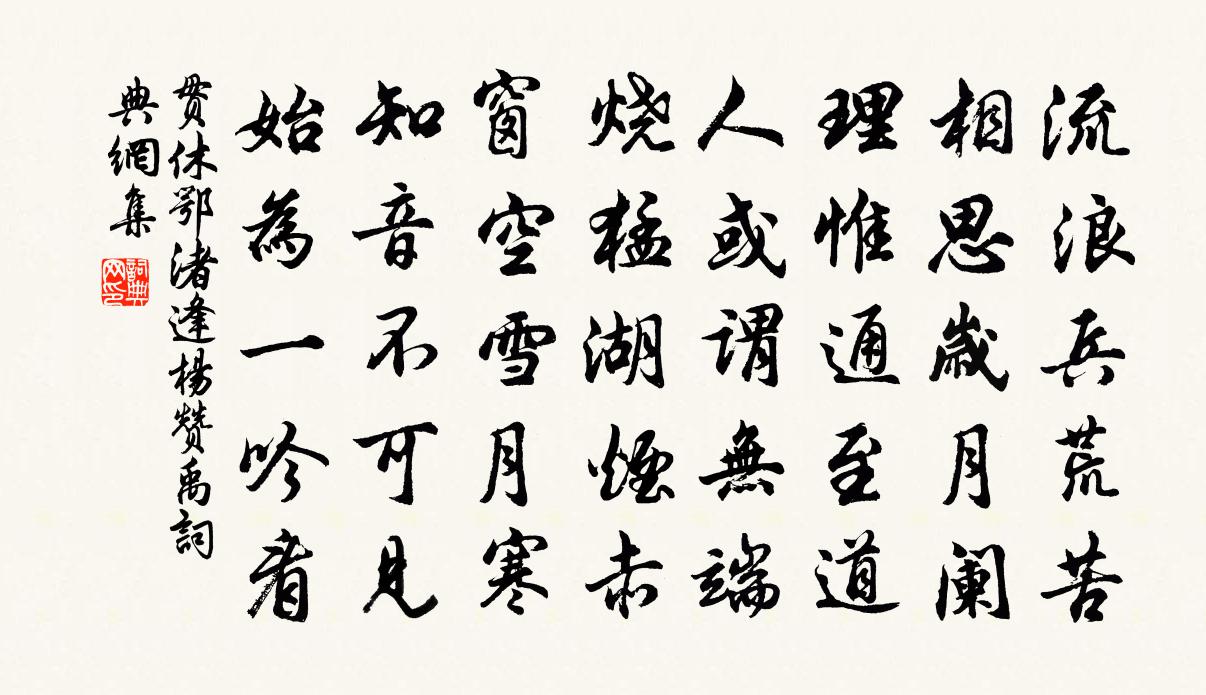 流浪兵荒苦
相思歲月闌
理惟通至道
人或謂無端
燒猛湖煙赤
窗空雪月寒
知音不可見
始為一吟看
貫休鄂渚逢楊贊禹詞
典網集
詞典
网印